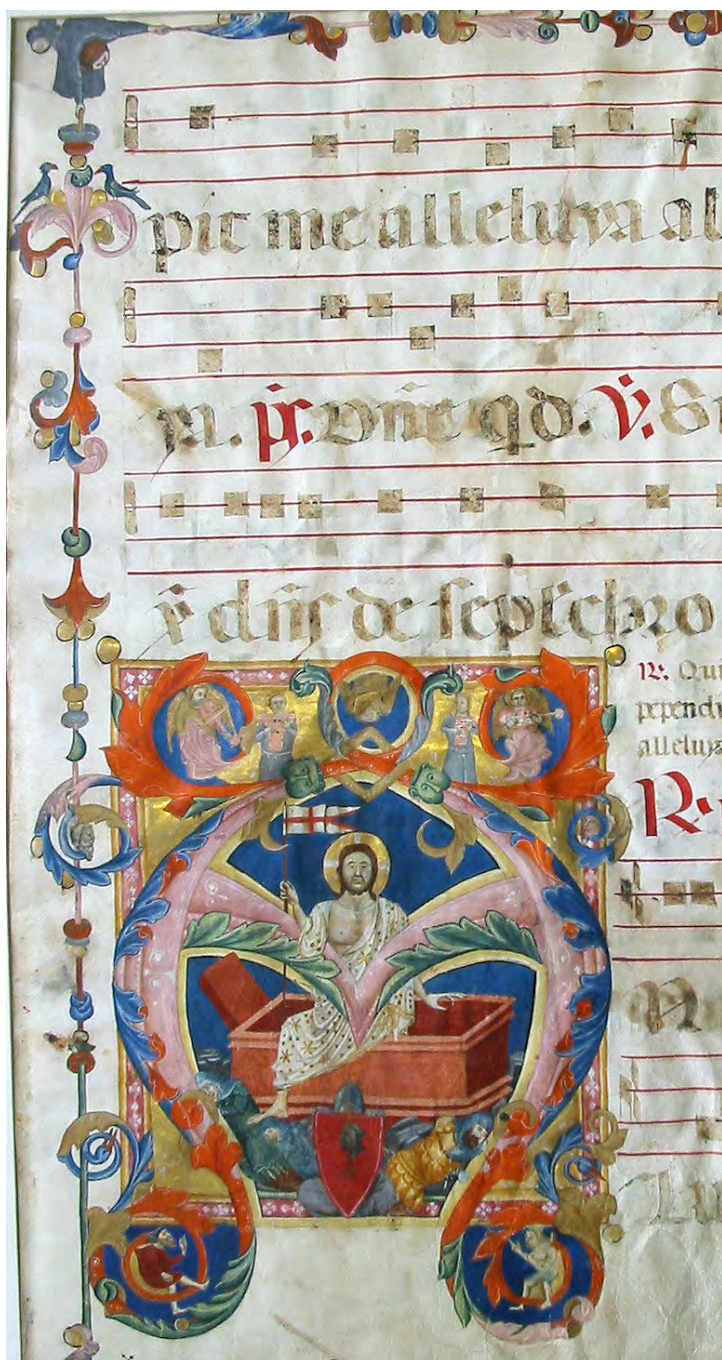 pit me alleluya al
ya. ps. Dñe qd. v.
r dñs de sepulchro
R. Qui
pependi
alleluya
R.